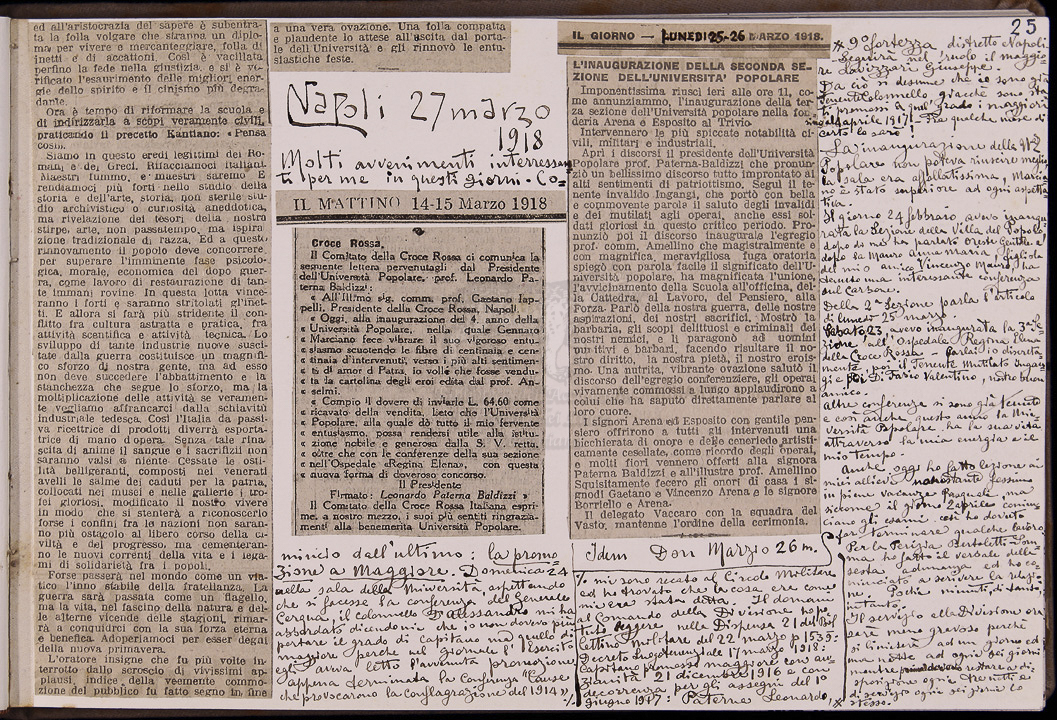 25
ed all'aristocrazia del sapere è subentra-
ta la folla volgare che strappa un diplo-
ma per vivere e mercanteggiare, folla di
inetti e di accattoni. Così è vacillata
perfino la fede nella giustizia, e si è ve-
rificato l'esaurimento delle migliori ener-
gie dello spirito e il cinismo più degra-
dante.
Ora è tempo di riformare la scuola e
di indirizzarla a scopi veramente civili,
praticando il precetto Kantiano: «Pensa
così».
Siamo in questo eredi legittimi dei Ro-
mani e dei Greci. Rifacciamoci italiani.
Maestri fummo, e maestri saremo. E
rendiamoci più forti nello studio della
storia e dell'arte, storia, non sterile stu-
dio archivistico o curiosità aneddotica,
ma rivelazione dei tesori della nostra
stirpe, arte, non passatempo, ma ispira
zione tradizionale di razza. Ed a questo
rinnovamento il popolo deve concorrere,
per superare l'imminente fase psicolo-
gica, morale, economica del dopo guer-
ra, come lavoro di restaurazione di tan-
te immani rovine. In questa lotta vince-
ranno i forti e saranno stritolati gl'inet-
ti. E allora si farà più stridente il con-
flitto fra cultura astratta e pratica, fra
attività scentifica e attività tecnica. Lo
sviluppo di tante industrie nuove susci-
tate dalla guerra costituisce un magnifi-
co sforzo di nostra gente, ma ad esso
non deve succedere l'abbattimento e la
stanchezza che segue lo sforzo, ma la
moltiplicazione delle attività se veramen-
te vogliamo affrancarci dalla schiavitù
industriale tedesca. Così l'Italia da passi-
va ricettrice di prodotti, diverrà esporta-
trice di mano d'opera. Senza tale rina
scita di anime il sangue e i sacrifizi non
saranno valsi a niente. Cessate le osti-
lità belligeranti, composti nei venerati
avelli le salme dei caduti per la patria,
collocati nei musei e nelle gallerie i tro-
fei gloriosi, modificato il nostro vivere
in modo che si stenterà a riconoscerlo
forse i confini fra le nazioni non saran-
no più ostacolo al libero corso della ci-
viltà e del progresso, ma cementeran-
no le nuovi correnti della vita e i lega-
mi di solidarietà fra i popoli.
Forse passerà, nel mondo come un via-
tico l'inno stabile della fratellanza. La
guerra sarà passata come un flagello,
ma la vita, nel fascino della natura e del-
le alterne vicende delle stagioni, rimar-
rà a conquiderci con la sua forza eterna
e benefica. Adoperiamoci per esser degni
della nuova primavera.
L'oratore insigne che fu più volte in-
terrotto dallo scroscio di vivissimi ap-
plausi, indice della veemente commo-
zione del pubblico fu fatto segno in fine
a una vera ovazione. Una folla compatta
e plaudente lo attese all'uscita dal porta-
le dell'Università e gli rinnovò le entu-
siastiche feste.
Napoli 27 marzo
1918
Molti avvenimenti interressan
ti per me in questi giorni. Co=
IL MATTINO 14-15 Marzo 1918
Croce Rossa.
Il Comitato della Croce Rossa ci comunica la
seguente lettera pervenutagli dal Presidente
dell'Università Popolare, prof. Leonardo Pa-
terna Baldizzi:
« All'Ill.mo sig. comm. prof. Gaetano Iap-
pelli, Presidente della Croce Rossa, Napoli.
« Oggi, alla inaugurazione del 4. anno della
« Università Popolare, nella quale Gennaro
« Marciano fece vibrare il suo vigoroso entu-
« siasmo scuotendo le fibre di centinaia e cen-
« tinaia d'intervenuti, verso i più alti sentimen-
« ti di amor di Patria, io volle che fosse vendu-
« ta la cartolina degli eroi edita dal prof. An-
« selmi.
« Compio il dovere di inviarle L. 64.60 come
« ricavato della vendita, lieto che l'Università
« Popolare, alla quale dò tutto il mio fervente
« entusiasmo, possa rendersi utile alla istitu-
« zione nobile e generosa dalla S. V. retta,
« oltre che con le conferenze della sua sezione
« nell'Ospedale «Regina Elena», con questa
« nuova forma di doveroso concorso.
Il Presidente
Firmato: Leonardo Paterna Baldizzi »
Il Comitato della Croce Rossa Italiana espri-
me, a nostro mezzo, i suoi più sentiti ringrazia-
menti alla benemerita Università Popolare.
mincio dall'ultimo: la promo
zione a Maggiore. Domenica 24
nella sala della Università, aspettando
che si facesse la conferenza del Generale
Cergua, il colonnello D'Alessandro mi ha
abbordato dicendomi che io non dovevo più
portare il grado di capitano ma quello di
maggiore perchè nel giornale l'Esercito
egli aveva letto l'avvenuta promozione
Appena terminata la Conferenza "Cause
che provocarono la conflagrazione del 1914"
IL GIORNO — LUNEDI 25-26 MARZO 1918.
L'INAUGURAZIONE DELLA SECONDA SE-
ZIONE DELL'UNIVERSITA' POPOLARE
Imponentissima riuscì ieri alle ore 11, co-
me annunziammo, l'inaugurazione della ter-
za sezione dell'Università popolare nella fon-
deria Arena e Esposito al Trivio
Intervennero le più spiccate notabilità ci-
vili, militari e industriali.
Aprì i discorsi il presidente dell'Università
Popolare prof. Paterna-Baldizzi che pronun-
ziò un bellissimo discorso tutto improntato ai
alti sentimenti di patriottismo. Seguì il te-
nente invalido Ingangi, che portò con bella
e commovente parole il saluto degli invalidi
e dei mutilati agli operai, anche essi sol-
dati gloriosi in questo critico periodo. Pro-
nunziò poi il discorso inaugurale l'egregio
prof. comm. Amellino che magistralmente e
con magnifica, meravigliosa fuga oratoria
spiegò con parola facile il significato dell'U-
niversità popolare, ha magnificata l'unione
l'avvicinamento della Scuola all'officina, del-
la Cattedra, al Lavoro, del Pensiero, alla
Forza. Parlò della nostra guerra, delle nostre
aspirazioni, dei nostri sacrifici. Mostrò la
barbaria, gli scopi delittuosi e criminali dei
nostri nemici, e li paragonò ad uomini
primitivi e barbari, facendo risultare il no-
stro diritto, la nostra pietà, il nostro eroi-
smo. Una nutrita, vibrante ovazione salutò il
discorso dell'egregio conferenziere, gli operai
vivamente commossi a lungo applaudirono a
colui che ha saputo direttamente parlare al
loro cuore.
I signori Arena ed Esposito con gentile pen-
siero offrirono a tutti gli intervenuti una
bicchierata di onore e delle ceneriere artisti-
camente cesellate, come ricordo degli operai,
e molti fiori vennero offerti alla signora
Paterna Baldizzi e all'illustre prof. Amellino
Squisitamente fecero gli onori di casa i si-
gnodi Gaetano e Vincenzo Arena e le signore
Borriello e Arena.
Il delegato Vaccaro con la squadra del
Vasto, mantenne l'ordine della cerimonia.
Idem Don Marzio 26 m.
% mi sono recato al Circolo Militare
ed ho trovato che la cosa era come
mi era stata detta. Il domani
al Comando della Divisione ho po-
tuto leggere nella Dispensa 21 del Bol
lettino Militare del 22 marzo p 1535:
Decreto Luogotenenziale 17 marzo 1918:
Capitano promosso maggiore con an-
zianità 21 dicembre 1916 e con
decorrenza per gli assegni del 1°
giugno 1917: Paterna Leonardo,
* 9° fortezza distretto Napoli
Seguirà nel ruolo il maggio
re Lavizzari Giuseppe.
Da ciò si desume che io sono già
tenente colonnello giacchè sono stati
promossi a quel grado i maggiori
aprile 1917! Fra qualche mese di
certo lo sarò!
L'inaugurazione della
Popolare non poteva riuscire meglio
la sala era affollatissima, Marcia
no è stato superiore ad ogni aspetta
tiva.
Il giorno 24 febbraio avevo inaugu
rata la Sezione della Villa del Popolo
dopo di me ha parlato Oreste Gentile e
dopo la Mauro Anna Maria, figliola
del mio amico Vincenzo Mauro, ha
tenuto una interessante conferenza
sul Carbone.
Della 2ª Sezione parla l'articolo
di lunedì 25 marzo
Sabato 23, avevo inaugurata la 3ª Se
zione all'Ospedale Regina Elena
della Croce Rossa - Parlai io discreta
mente, poi il Tenente Mutilato Ingan
gi e poi D. Fasio Valentino, nostro buon
amico.
Altre conferenze si sono già tenute
e così anche questo anno la Uni
versità Popolare ha la sua vita
attraverso la mia energia e il
mio tempo.
Anche oggi ho fatto lezione ai
miei allievi nonostante fossimo
in piene vacanze Pasquali, ma
siccome il giorno 2 aprile comin
ciano gli esami così ho dovuto
far terminare qualche lavoro
Per la Perizia Bertoletti Don
ma ho fatto il verbale della
sesta adunanza ed ho co-
minciato a scrivere la relazio
ne. Pochi minuti, di tanto in
tanto.
Il servizio alla Divisione ora
sarà meno gravoso perchè
si limiterà ad un giorno ed
una notte ad ogni sei giorni
mentre prima dovevo restare a di
sposizione ogni tre notti e
di servizio ogni sei giorni lo
stesso.